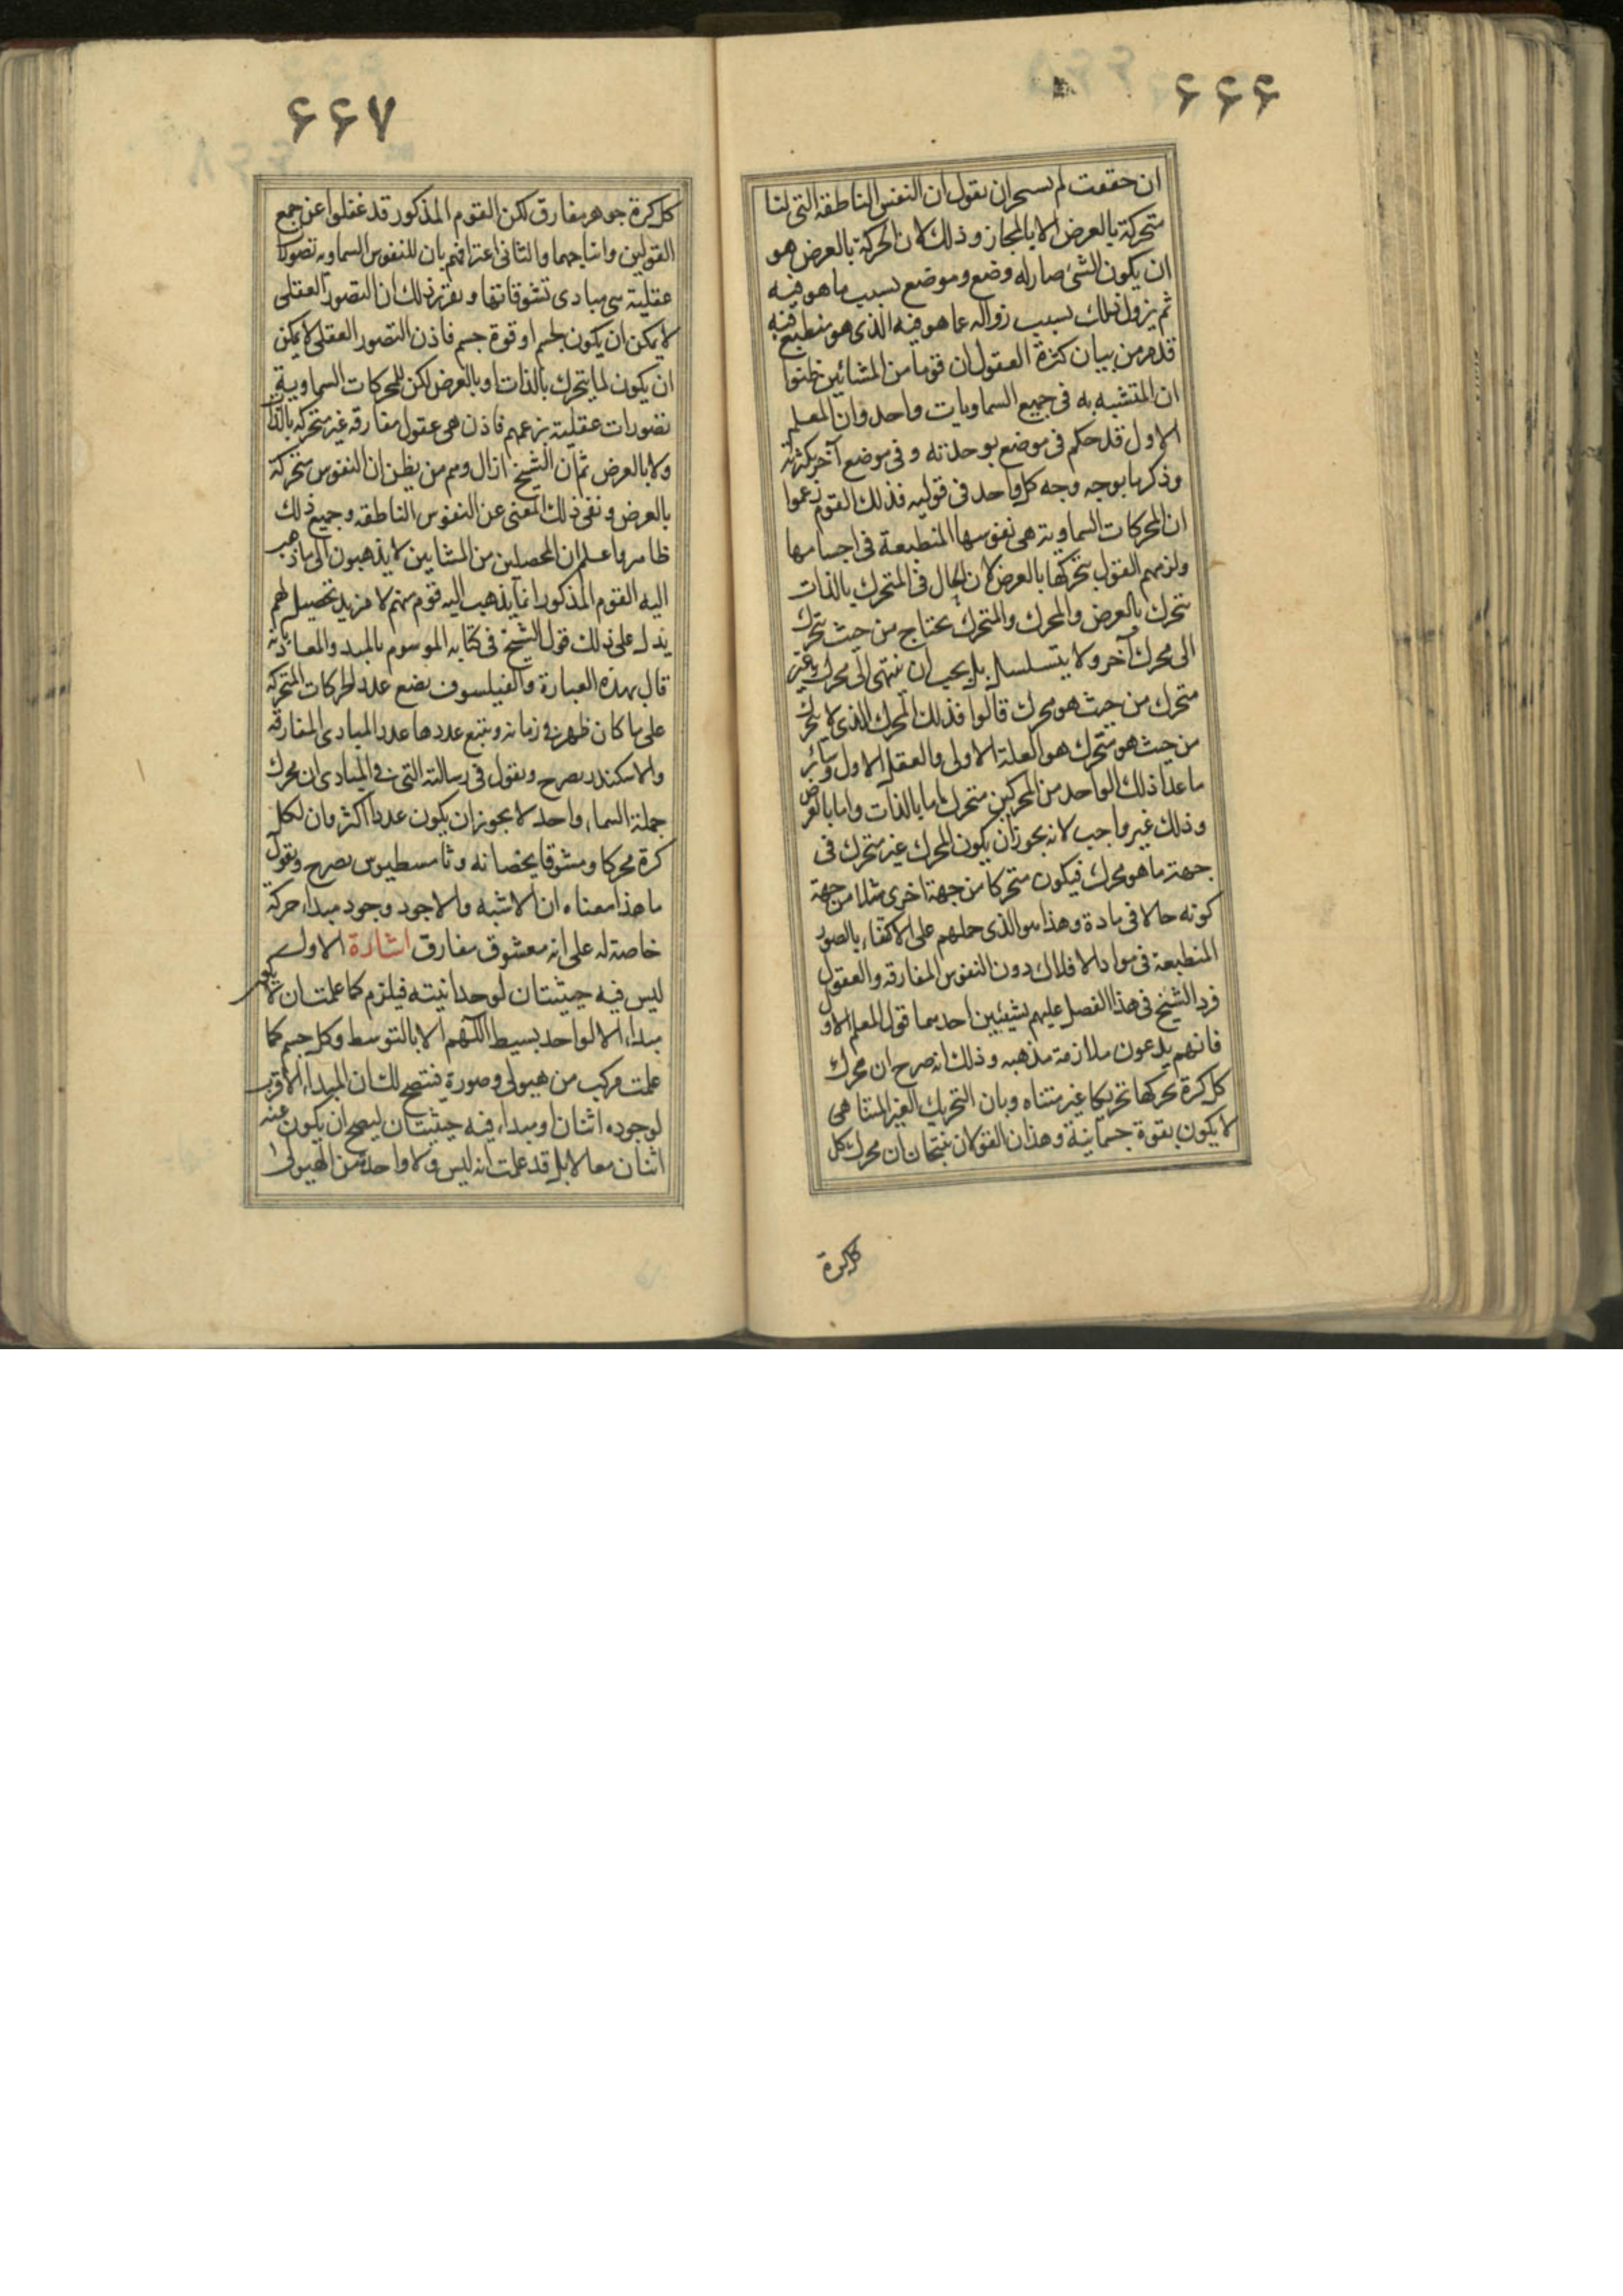 ۶۶۶
ان حققت لم تستجز ان تقول ان النفس الناطقة التى لنا
متحركة بالعرض الا بالمجاز و ذلك لان الحركة بالعرض هو
ان يكون الشئ صار له وضع و موضع بسبب ما هو فيه
ثم يزول ذلك بسبب زواله عما هو فيه الذى هو منطبع فيه
قد مر من بيان كثرة العقول ان قوما من المشائين ظنوا
ان المتشبه به فى جميع السماويات واحد وان المعلم
الاول قد حكم فى موضع بوحدته و فى موضع آخر بكثرته
وذكرنا بوجه وجه كل واحد فى قوليه فذلك القوم زعموا
ان المحركات السماوية هى نفوسها المنطبعة فى اجسامها
ولزمهم القول بتحركها بالعرض لان الحال فى المتحرك بالذات
يتحرك بالعرض والمحرك والمتحرك يحتاج من حيث يتحرك
الى محرك آخر ولا يتسلسل بل يجب ان ينتهى الى محرك غير
متحرك من حيث هو محرك قالوا فذلك المحرك الذى لا يتحرك
من حيث هو متحرك هو العلة الاولى والعقل الاول وسائر
ما عدا ذلك الواحد من المحركين متحرك اما بالذات واما بالعرض
وذلك غير واجب لانه يجوز ان يكون المحرك غير متحرك فى
جهة ما هو محرك فيكون متحركا من جهة اخرى مثلا من جهة
كونه حالا فى مادة وهذا هو الذى حملهم على الاكتفاء بالصور
المنطبعة فى مواد الافلاك دون النفوس المفارقه والعقول
فرد الشيخ فى هذا الفصل عليهم بشيئين احدهما قول المعلم الاول
فانهم يدعون ملازمة مذهبه وذلك انه صرح ان محرك
كل كرة يحركها تحريكا غير متناه وبان التحريك الغير المتناهى
لا يكون بقوة جسمانية وهذان القولان ينتجان ان محرك كل
كل كرة
۶۶۷
كل كرة جوهر مفارق لكن القوم المذكور قد غفلوا عن جمع
القولين وانتاجهما والثانى اعترافهم بان للنفوس السماويه تصورات
عقلية هى مبادى تشوقاتها وتقرير ذلك ان التصور العقلى
لا يمكن ان يكون لجسم او قوة جسم فاذن التصور العقلى لا يمكن
ان يكون لما يتحرك بالذات او بالعرض لكن للمحركات السماوية
تصورات عقلية بزعمهم فاذن هى عقول مفارقه غير متحركه بالذات
ولا بالعرض ثم ان الشيخ ازال وهم من يظن ان النفوس متحركة
بالعرض ونفى ذلك المعنى عن النفوس الناطقه وجميع ذلك
ظاهر واعلم ان المحصلين من المشايين لا يذهبون الى ما ذهب
اليه القوم المذكور انما يذهب اليه قوم منهم لا مزيد تحصيل لهم
يدل على ذلك قول الشيخ فى كتابه الموسوم بالمبدء والمعاد بانه
قال بهذه العبارة والفيلسوف يضع عدد الحركات المتحركة
على ما كان ظهر فى زمانه ويتبع عددها عدد المبادى المفارقه
والاسكندر يصرح ويقول فى رسالته التى فى المبادى ان محرك
جملة السماء واحد لا يجوز ان يكون عددا اكثر وان لكل
كرة محركا ومشوقا يخصانه وثامسطيوس يصرح ويقول
ما هذا معناه ان الاشبه والاجود وجود مبداء حركة
خاصة له على انه معشوق مفارق اشارة الاول
ليس فيه حيثيتان لوحدانيته فيلزم كما علمت ان لا يكون
مبداء الا لواحد بسيط اللهم الا بالتوسط وكل جسم كما
علمت مركب من هيولى وصورة فيتضح لك ان المبداء الاقرب
لوجوده اثنان او مبداء فيه حيثيتان ليصح ان يكون عنه
اثنان معا لا بل قد علمت انه ليس ولا واحدة من الهيولى